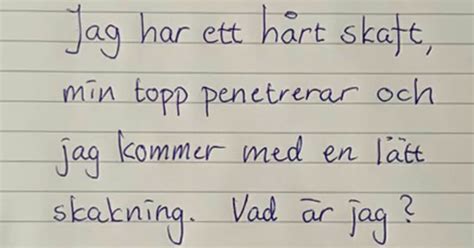 Jag har ett hårt skaft,
min topp penetrerar och
jag kommer med en lätt
skakning. Vad är jag?